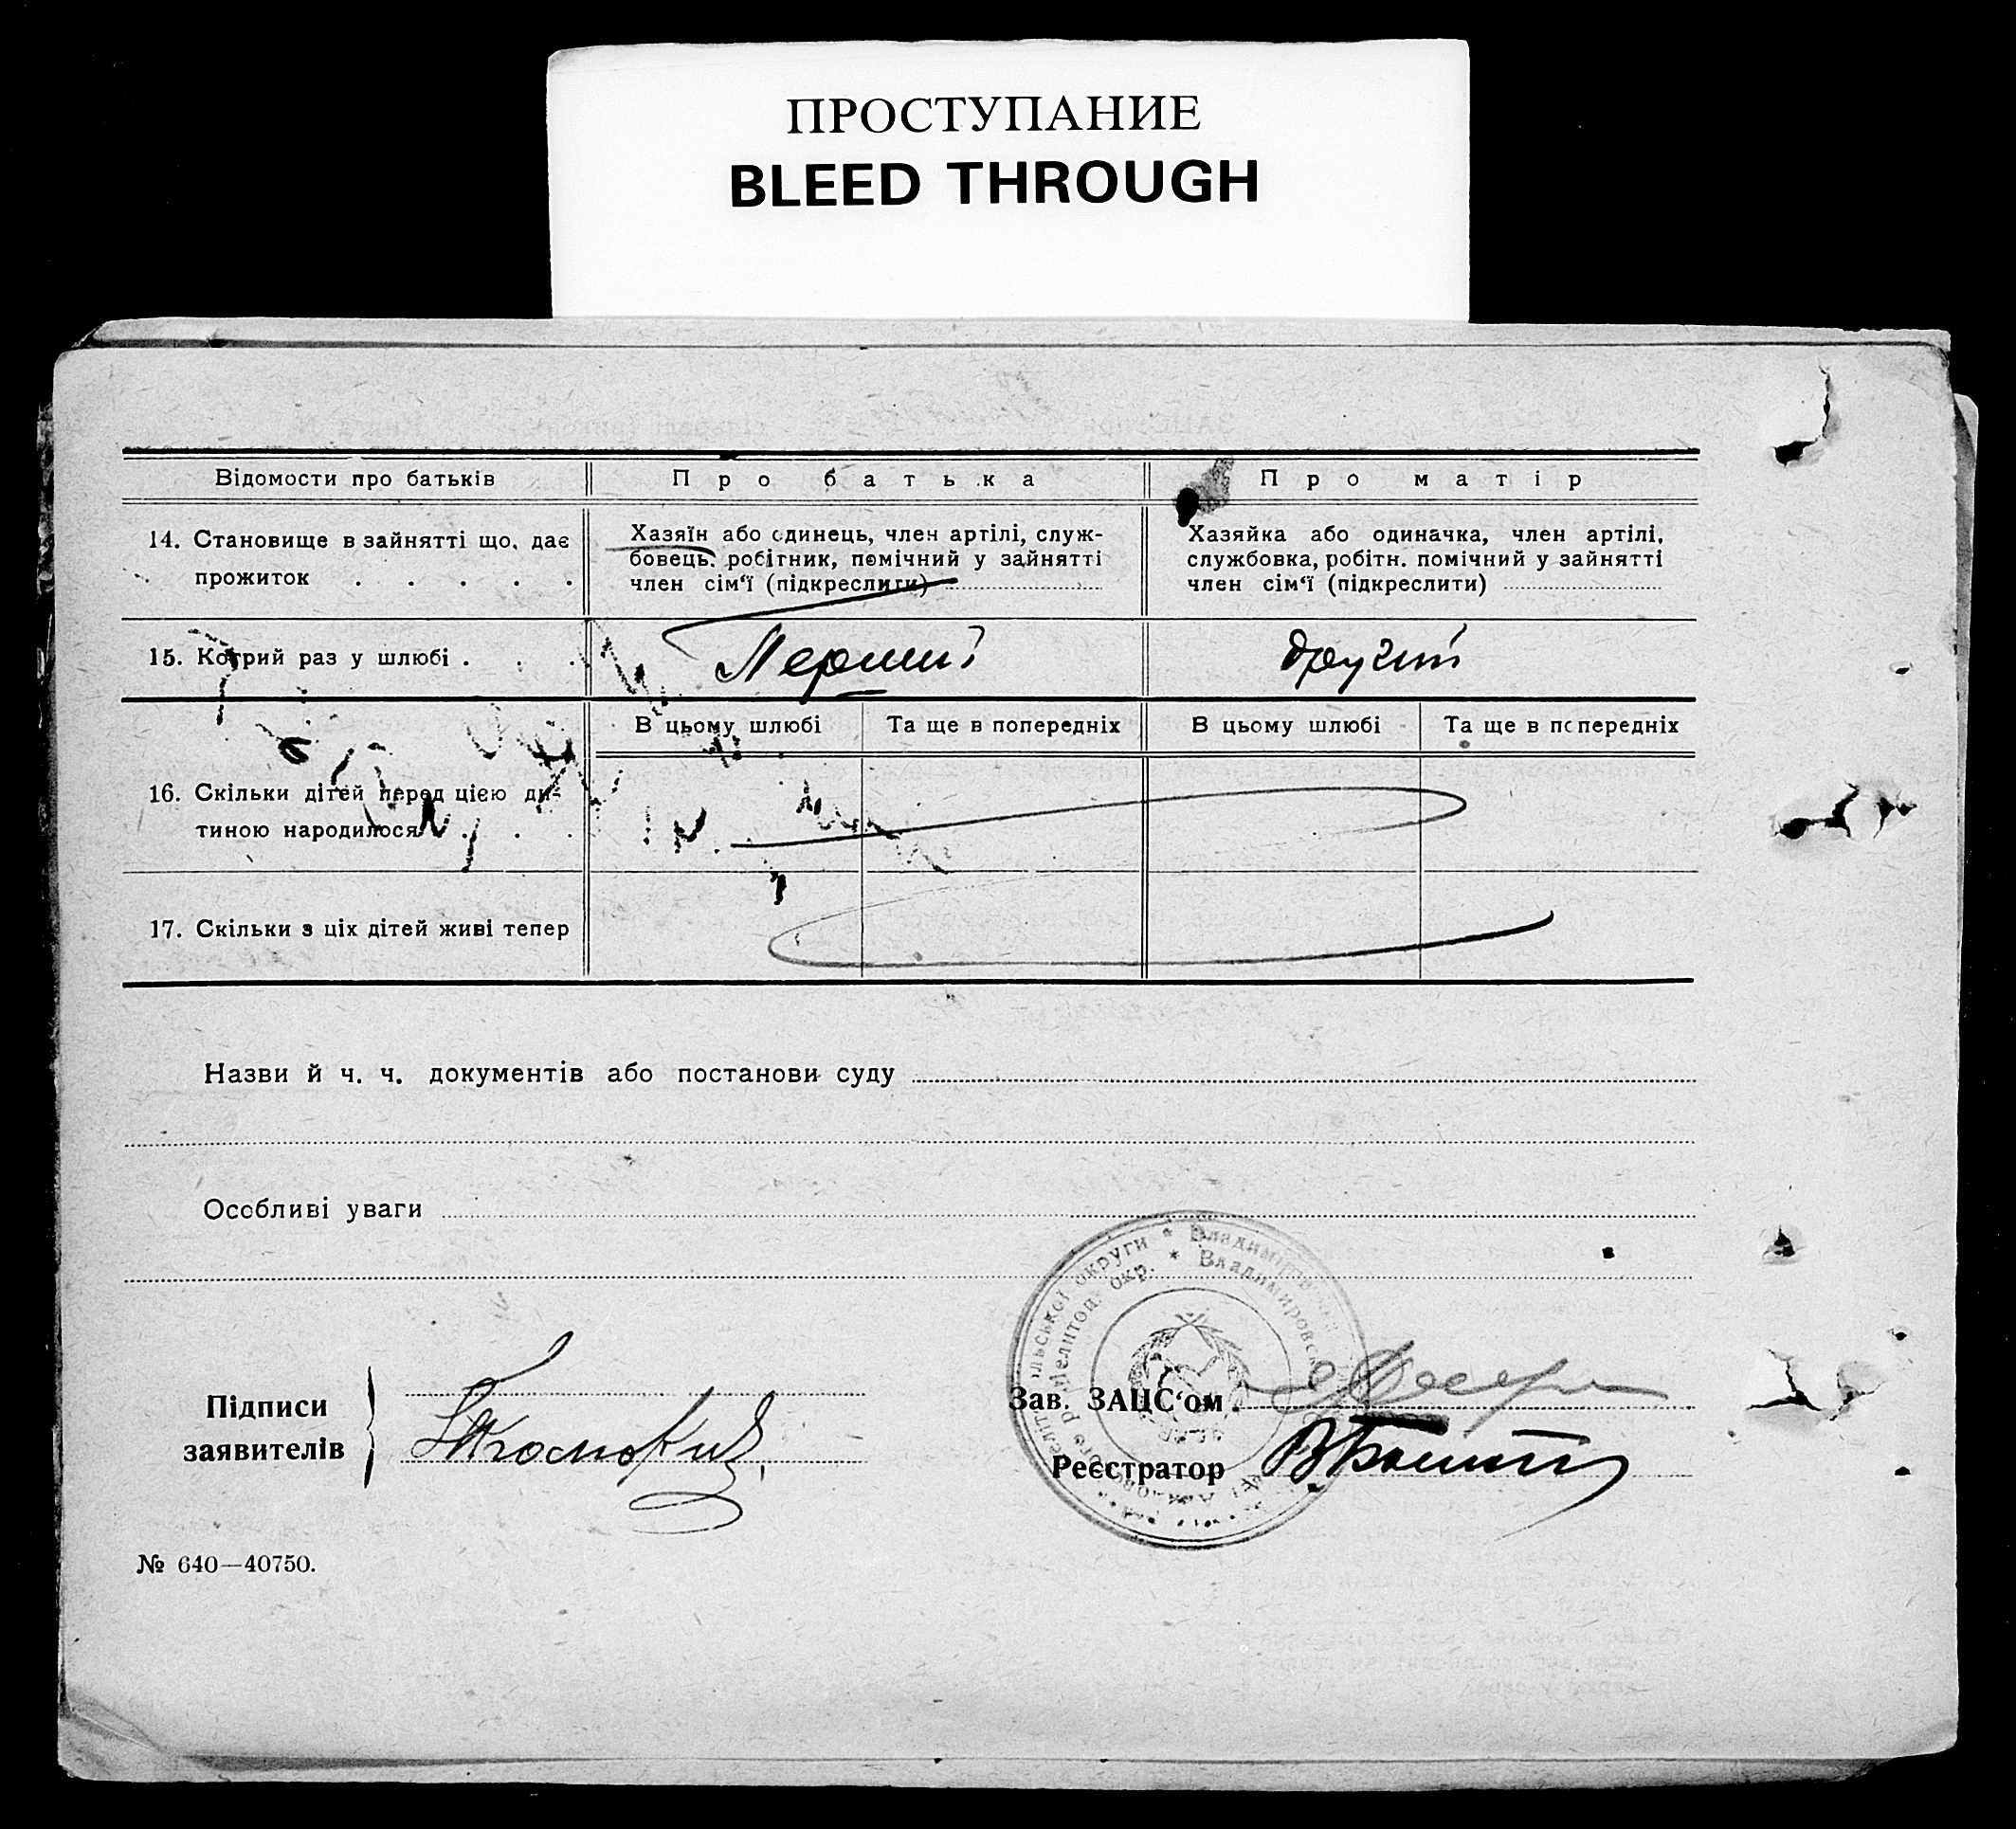 ПРОСТУПАНИЕ
BLEED THROUGH
Відомости про батьків
Про батька
Про матір
14. Становище в зайнятті що, дає
прожиток . . . . .
Хазяїн або одинець, член артілі, служ-
бовець, робітник, помічний у зайнятті
член сім‘ї (підкреслити)
Хазяйка або одиначка, член артілі,
службовка, робітн. помічний у зайнятті
член сім‘ї (підкреслити)
15. Котрий раз у шлюбі . . .
Перший
другий
В цьому шлюбі
Та ще в попередніх
В цьому шлюбі
Та ще в попередніх
16. Скільки дітей перед цією ди-
тиною народилося . . .
17. Скільки з ціх дітей живі тепер
Назви й ч. ч. документів або постанови суду
Особливі уваги
округи * Владимировськ
окр. * Владимировск
Мелитоп.
Підписи
заявителів
Зав. ЗАЦС‘ом
Реєстратор
№ 640—40750.